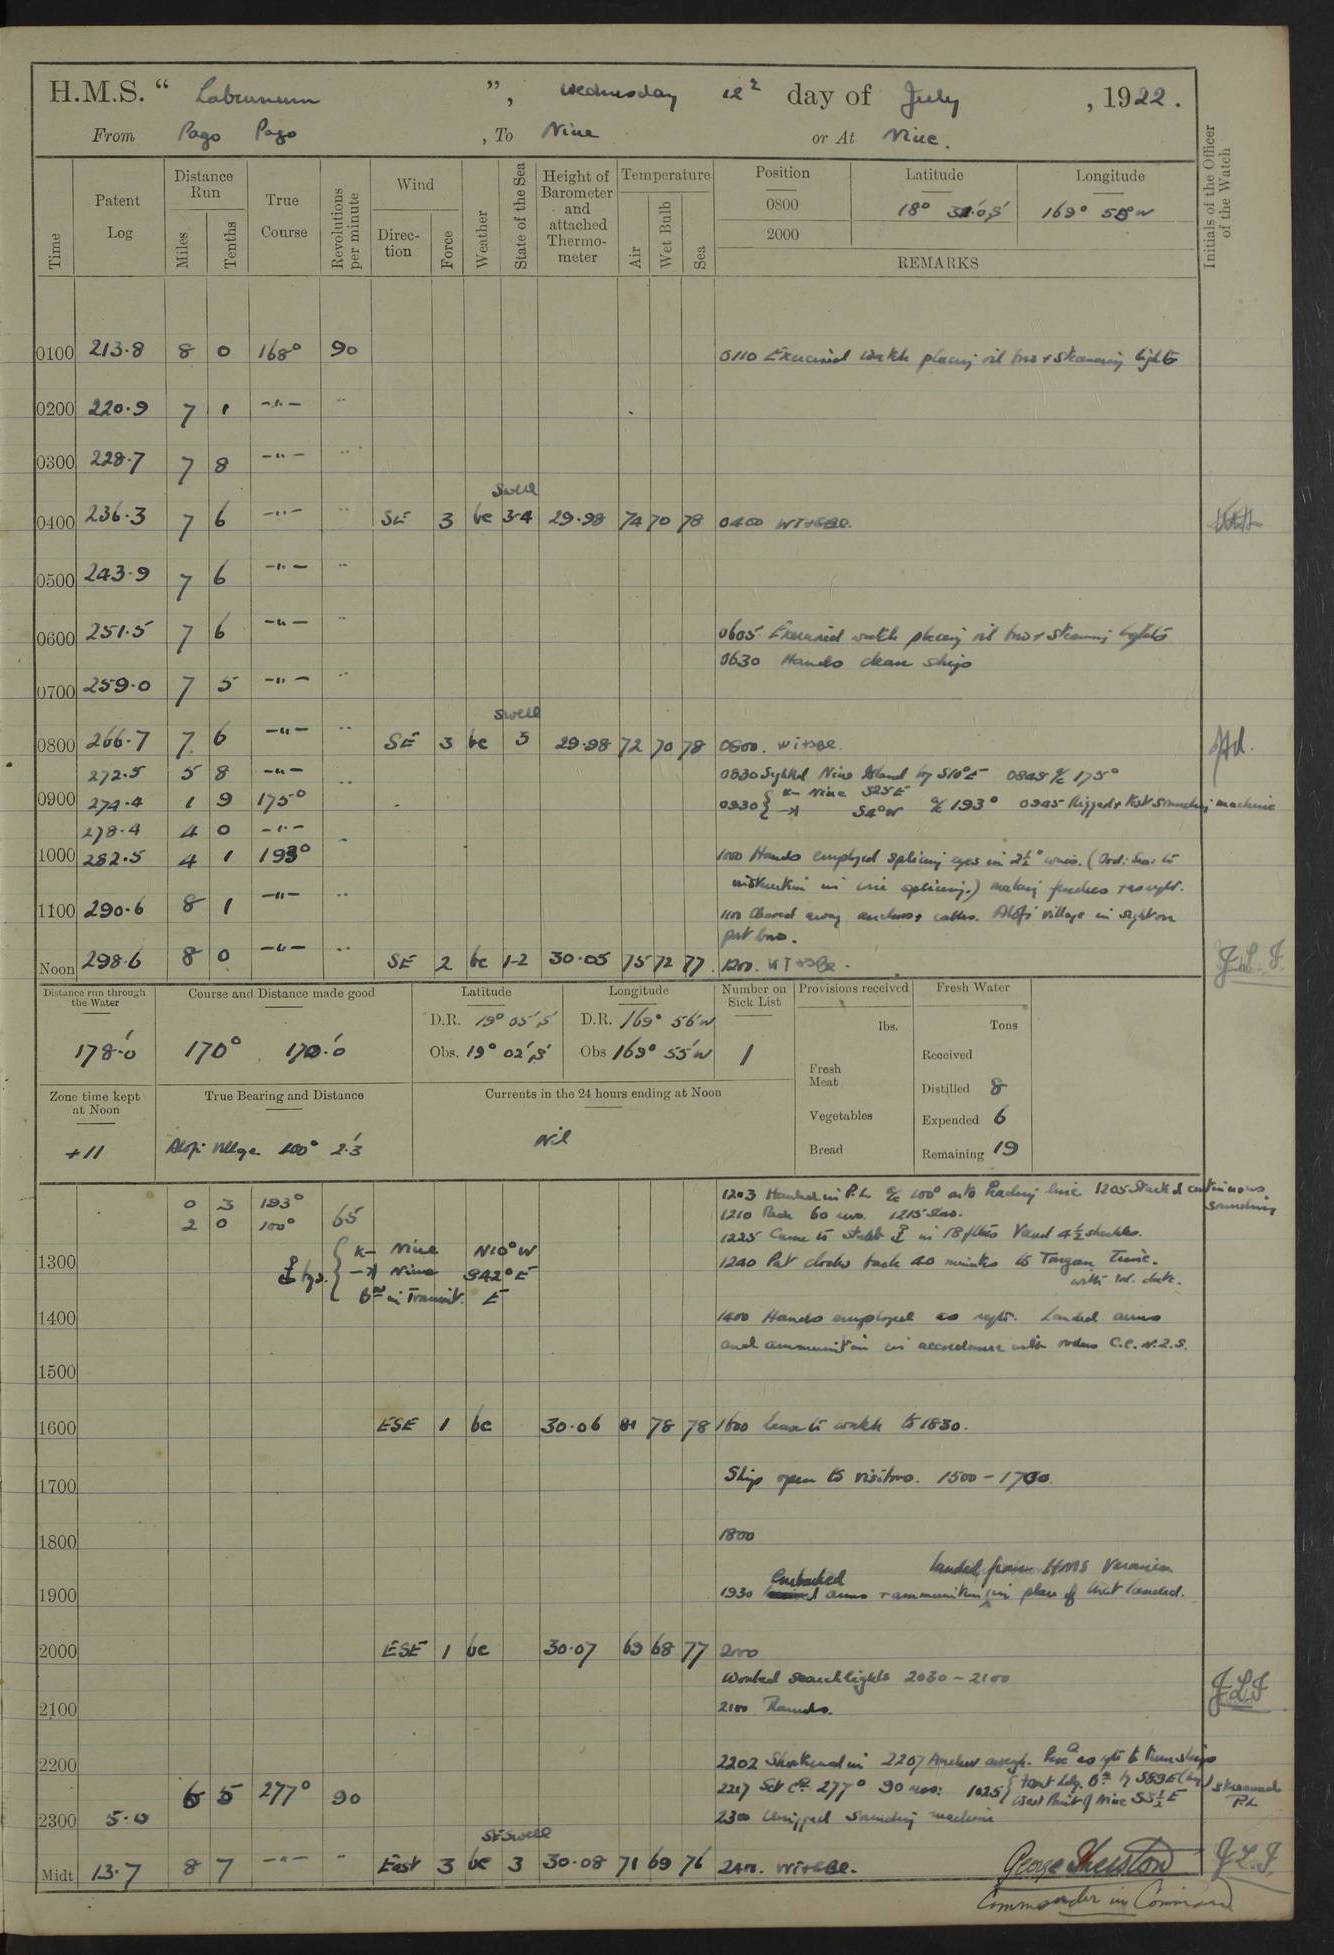 H.M.S. “ Laburnum ”, Wednesday 12 day of July, 1922.
From Pago Pago, To Niue or At Niue.
Time
Patent Log
Distance Run
Miles
Tenths
True Course
Revolutions per minute
Wind
Direction
Force
Weather
State of the Sea
Height of Barometer and attached Thermometer
Temperature
Air
Wet Bulb
Sea
Position
Latitude
Longitude
0800 18° 169° W
2000
REMARKS
Initials of the Officer of the Watch
0100 213.8 8 0 168° 90
0110 Exercised watch placing oil bow & steaming lights
0200 220.9 7 1 -"- "
0300 228.7 7 8 -"- "
swell
0400 236.3 7 6 -"- " SE 3 bc 3-4 29.98 74 70 78 0400
0500 243.9 7 6 -"- "
0600 251.5 7 6 -"- "
0605 Exercised watch placing oil bow & steaming lights
0630 Hands clean ship
0700 259.0 7 5 -"- "
swell
0800 266.7 7 6 -"- " SE 3 bc 3 29.98 72 70 78 0800.
272.5 5 8 -"- 0830 Sighted Niue Island by S10°E 0845 a/c 175°
0900 274.4 1 9 175° 0930 Niue S25E S4°W a/c 193° 0945 Rigged & test sounding machine
278.4 4 0 -"-
1000 282.5 4 1 193° 1000 Hands employed splicing eyes in 2½" wires. (Ord: Sea: to
instruction in wire splicing.) making fenders & as reqt.
1100 290.6 8 1 -"- 1100 Cleared away anchors & cables. Alofi village in sight on
port bow.
Noon 298.6 8 0 -"- " SE 2 bc 1-2 30.05 75 72 77 1200.
J.L.J.
Distance run through the Water
178.0
Course and Distance made good
170° 170.0
Latitude
D.R. 19° 05' S
Obs. 19° 02' S
Longitude
D.R. 169° 56' W
Obs 169° 55' W
Number on Sick List
1
Provisions received
lbs.
Fresh Meat
Vegetables
Bread
Fresh Water
Tons
Received
Distilled 8
Expended 6
Remaining 19
Zone time kept at Noon
+11
True Bearing and Distance
Alofi village 100° 2.3
Currents in the 24 hours ending at Noon
Nil
0 3 193° 1203 Hauled in P.L. a/c 100° onto leading line 1205 Started continuous sounding
2 0 100° 65 1210 Redn 60 revs. 1215 Slow.
1225 Came to stbd in 18 fths Veered 4½ shackles.
1300 Niue N10°W 1240 Put clocks back 40 minutes to Tongan Time.
Niue S42°E
Bns in Transit. E
1400 1400 Hands employed as reqte. Landed arms
and ammunition in accordance with orders C.C.N.Z.S.
1500
1600 ESE 1 bc 30.06 81 78 78 1600 leave to watch to 1830.
1700 Ship open to visitors. 1500 - 1700
1800 1800
Embarked landed from HMS Veronica
1900 1930 arms & ammunition in place of that landed.
2000 ESE 1 bc 30.07 69 68 77 2000
Worked searchlights 2030 - 2100
2100 2100 Rounds.
J.L.J.
2200 2202 Shortened in 2207 Anchor aweigh.
6 5 277° 90 2217 Set Co 277° 90 revs: West Point of Niue S5½E Streamed P.L.
2300 5.0 2300 Unrigged sounding machine
SE swell
Midt 13.7 8 7 -"- " East 3 bc 3 30.08 71 69 76 2400.
J.L.J.
George Sherston
Commander in Command